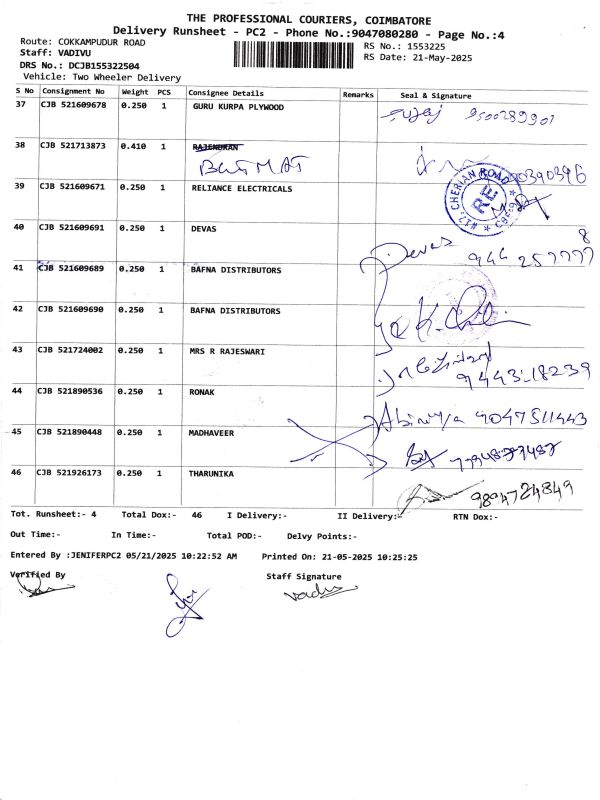 THE PROFESSIONAL COURIERS, COIMBATORE
Delivery Runsheet - PC2 - Phone No.:9047080280 - Page No.:4
Route: COKKAMPUDUR ROAD
Staff: VADIVU
DRS No.: DCJB155322504
Vehicle: Two Wheeler Delivery
RS No.: 1553225
RS Date: 21-May-2025
S No Consignment No Weight PCS Consignee Details Remarks Seal & Signature
37 CJB 521609678 0.250 1 GURU KURPA PLYWOOD 9500289901
38 CJB 521713873 0.410 1 RAJENDRAN
39 CJB 521609671 0.250 1 RELIANCE ELECTRICALS
CHERIAN ROAD
RE
40 CJB 521609691 0.250 1 DEVAS Devas
41 CJB 521609689 0.250 1 BAFNA DISTRIBUTORS
42 CJB 521609690 0.250 1 BAFNA DISTRIBUTORS
43 CJB 521724002 0.250 1 MRS R RAJESWARI 9443518239
44 CJB 521890536 0.250 1 RONAK Abinaya 9047511443
45 CJB 521890448 0.250 1 MADHAVEER
46 CJB 521926173 0.250 1 THARUNIKA 9894724849
Tot. Runsheet:- 4 Total Dox:- 46 I Delivery:- II Delivery:- RTN Dox:-
Out Time:- In Time:- Total POD:- Delvy Points:-
Entered By :JENIFERPC2 05/21/2025 10:22:52 AM Printed On: 21-05-2025 10:25:25
Verified By Staff Signature